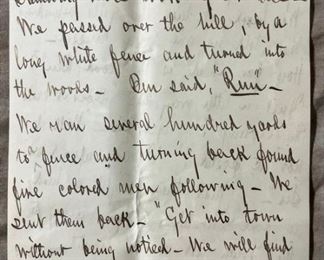 We passed over the hill, by a
long white fence and turned into
the woods – Ben said, "Run" –
We ran several hundred yards
to a fence and turning back found
five colored men following – We
sent them back – "Get into town
without being noticed – We will find